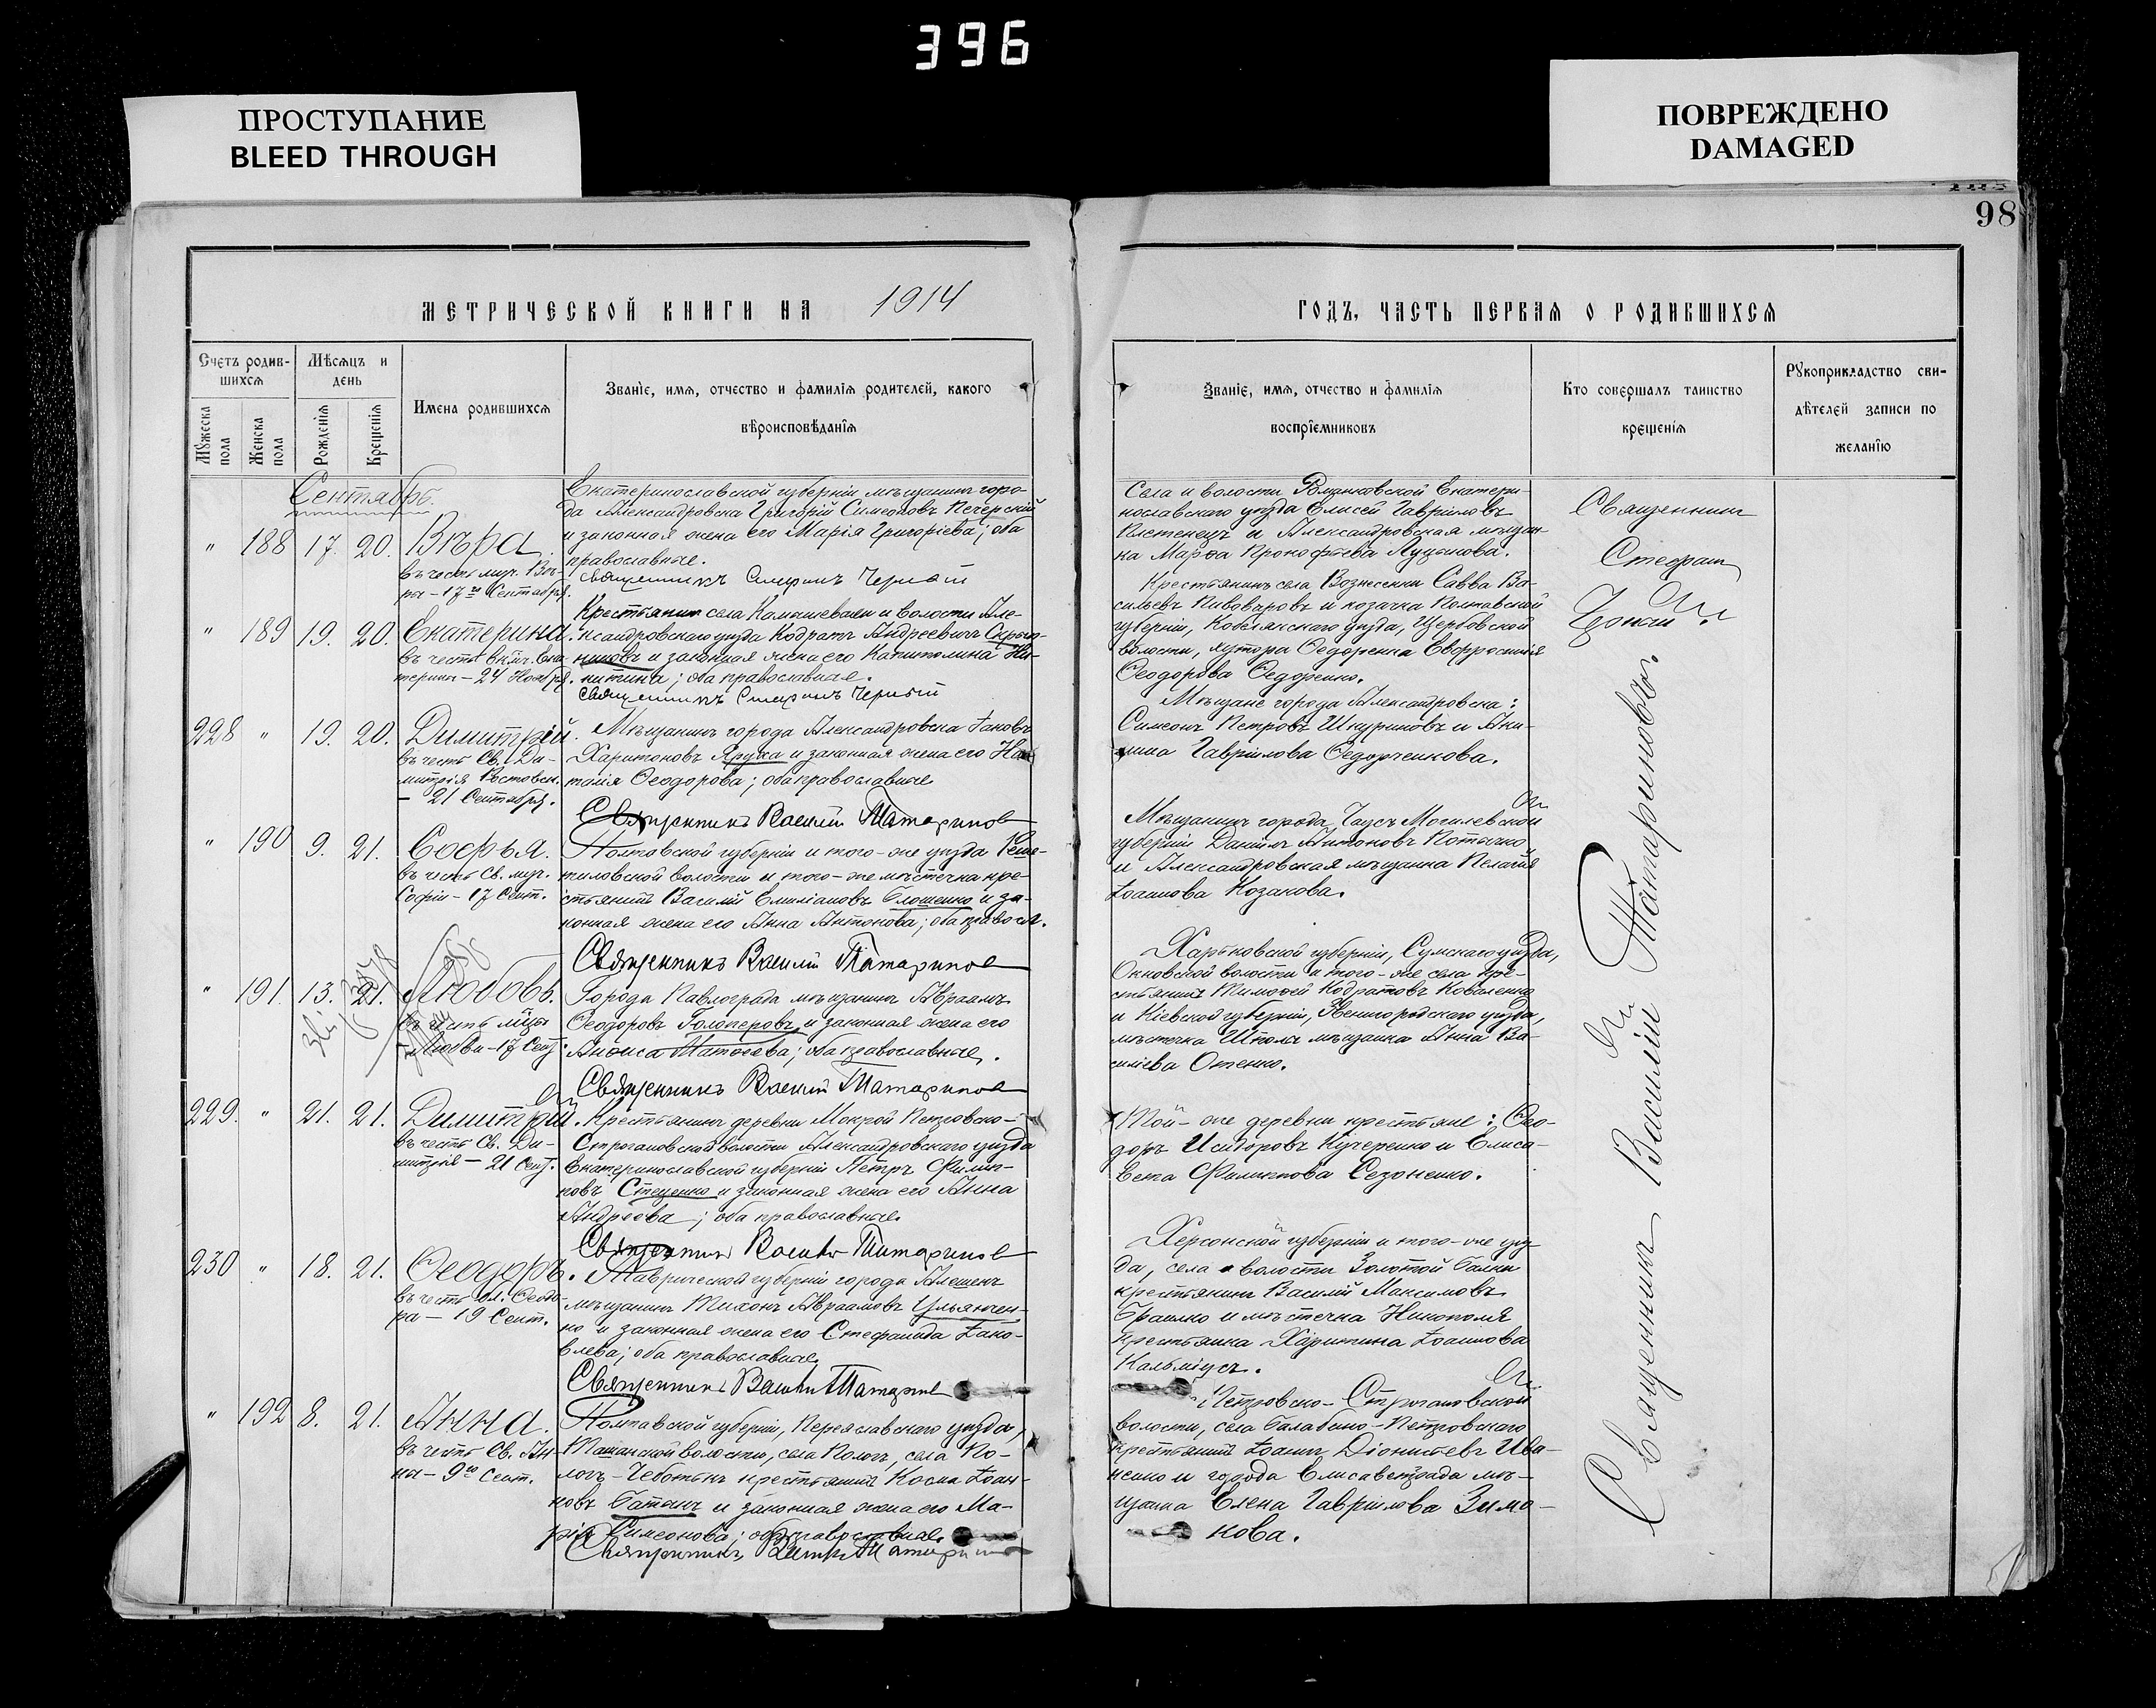 396
ПРОСТУПАНИЕ
BLEED THROUGH
ПОВРЕЖДЕНО
DAMAGED
98
МЕТРИЧЕСКОЙ КНИГИ НА 1914
ГОДЪ, ЧАСТЬ ПЕРВАЯ О РОДИВШИХСЯ
Счетъ родив-
шихся
Мѣсяцъ и
день
Мужеска
пола
Женска
пола
Рожденія
Крещенія
Имена родившихся
Званіе, имя, отчество и фамилія родителей, какого
вѣроисповѣданія
Званіе, имя, отчество и фамилія
воспріемниковъ
Кто совершалъ таинство
крещенія
Рукоприкладство сви-
дѣтелей записи по
желанію
Сентябрь.
" 188 17. 20. Вѣра.
въ честь муч. Вѣ-
ры - 17го Сентября.
Екатеринославской губерніи мѣщанинъ горо-
да Александровска Григорій Симеоновъ Печерскій
и законная жена его Марія Григоріева; оба
православные.
Священникъ Стефанъ Черный
Села и волости Екатери-
нославскаго уѣзда Елисей Гавріиловъ
Плетенецъ и Александровская мѣщан-
ка Марѳа Прокофьева Луцынова.
Священникъ
Стефанъ
" 189 19. 20. Екатерина.
въ честь вмч. Ека-
терины - 24 Ноября.
Крестьянинъ села Камышевахи и волости Але-
ксандровскаго уѣзда Кодратъ Андреевичъ
и законная жена его Капитолина Ни-
китина; оба православные.
Священникъ Стефанъ Черный
Крестьянинъ села Вознесенки Савва Ва-
сильевъ Пивоваровъ и козачка Полтавской
губерніи, Кобелякскаго уѣзда, Щербовской
волости, хутора Ѳедоренка Евфросинія
Ѳеодорова Ѳедоренко.
228 " 19. 20. Димитрій.
въ честь Св. Ди-
митрія Ростовск.
- 21 Сентября.
Мѣщанинъ города Александровска Іаковъ
Харитоновъ Яруха и законная жена его На-
талія Ѳеодорова; оба православные
Священникъ Василій Татариновъ
Мѣщане города Александровска:
Симеонъ Петровъ Шкуриновъ и Аки-
лина Гавріилова Ѳедорченкова.
" 190 9. 21. Софья.
въ честь Св. муч.
Софіи - 17 Сент.
Полтавской губерніи и того-же уѣзда Реше-
тиловской волости и того-же мѣстечка кре-
стьянинъ Василій Емиліановъ Блошенко и за-
конная жена его Анна Антонова; оба правосл.
Священникъ Василій Татариновъ
Мѣщанинъ города Чаусъ Могилевской
губерніи Даніилъ Антоновъ Потычко
и Александровская мѣщанка Пелагія
Іоаннова Козакова.
" 191. 13. 21. Любовь.
въ честь мцы
Любви - 17 Сент.
Города Павлограда мѣщанинъ Авраамъ
Ѳеодоровъ Голоперовъ и законная жена его
Анѳиса Матѳеева; оба православные.
Священникъ Василій Татариновъ
Харьковской губерніи, Сумскаго уѣзда,
волости и того-же села кре-
стьянинъ Тимоѳей Кодратовъ Коваленко
и Кіевской губерніи, Звенигородскаго уѣзда,
мѣстечка Шпола мѣщанка Анна Ва-
силіева Отенко.
229. " 21. 21. Димитрій.
въ честь Св. Ди-
митрія - 21 Сент.
Крестьянинъ деревни Мокрой Петровско-
Строгановской волости Александровскаго уѣзда
Екатеринославской губерніи Петръ Филип-
повъ Стеценко и законная жена его Анна
Андреева; оба православные.
Священникъ Василій Татариновъ
Той-же деревни крестьяне: Ѳео-
доръ Исидоровъ Кучеренко и Елиса-
вета Филиппова Сезоненко.
230 " 18. 21. Ѳеодоръ.
въ честь бл. Ѳеодо-
ра - 19 Сент.
Таврической губерніи города Алешекъ
мѣщанинъ Тихонъ Авраамовъ Ульянчен-
ко и законная жена его Стефанида Іако-
влева; оба православные.
Священникъ Василій Татариновъ
Херсонской губерніи и того-же уѣз-
да, села и волости Золотой Балки
крестьянинъ Василій Максимовъ
Брашко и мѣстечка Никополя
крестьянка Харитина Іоаннова
Кальміусъ.
" 192 8. 21. Анна.
въ честь Св. Ан-
ны - 9го Сент.
Полтавской губерніи, Переяславскаго уѣзда,
Ташанской волости, села Пологъ, села По-
логъ-Чеботькъ крестьянинъ Косма Іоан-
новъ Батанъ и законная жена его Ма-
рія Симеонова; оба православные.
Священникъ Василій Татариновъ
Петровско-Строгановской
волости, села Балабино-Петровскаго
крестьянинъ Іоаннъ Діонисіевъ Ива-
ненко и города Елисаветграда мѣ-
щанка Елена Гавріилова Зимо-
кова.
Священникъ Василій Татариновъ.